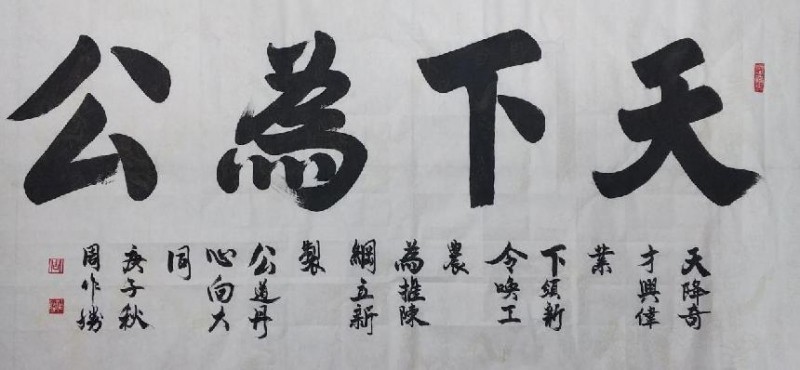 天下為公
天降奇
才興偉
業
下頒新
令喚工
農
為推陳
綱立新
製
公道丹
心向大
同
庚子秋
周作勝